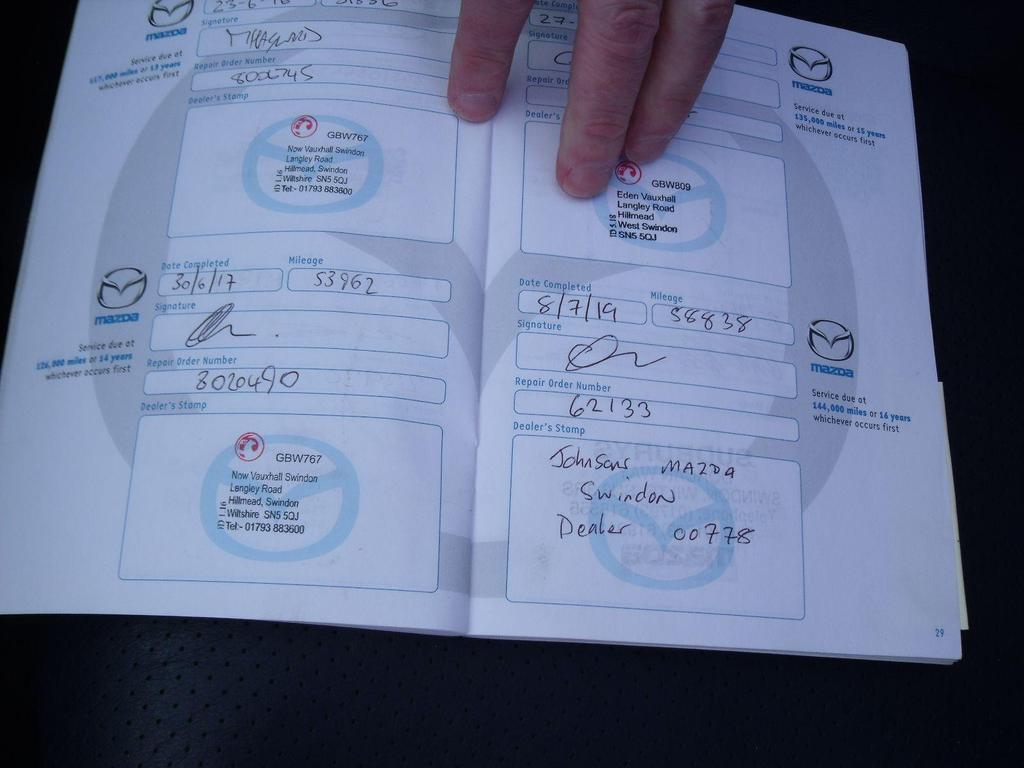 23-6-16
mazda
Service due at
117,000 miles or 13 years
whichever occurs first
Signature
Repair Order Number
8002745
Dealer's Stamp
GBW767
Now Vauxhall Swindon
Langley Road
Hillmead, Swindon
Wiltshire SN5 5QJ
Tel:- 01793 883600
ID 1.16
mazda
Service due at
126,000 miles or 14 years
whichever occurs first
Date Completed Mileage
30/6/17 53962
Signature
Repair Order Number
8020490
Dealer's Stamp
GBW767
Now Vauxhall Swindon
Langley Road
Hillmead, Swindon
Wiltshire SN5 5QJ
Tel:- 01793 883600
ID 1.16
Date Completed
27-
Signature
Repair Ord
Dealer's
mazda
Service due at
135,000 miles or 15 years
whichever occurs first
GBW809
Eden Vauxhall
Langley Road
Hillmead
West Swindon
SN5 5QJ
Date Completed Mileage
8/7/19 58838
Signature
Repair Order Number
62133
Dealer's Stamp
Johnsons MAZDA
Swindon
Dealer 00778
mazda
Service due at
144,000 miles or 16 years
whichever occurs first
29